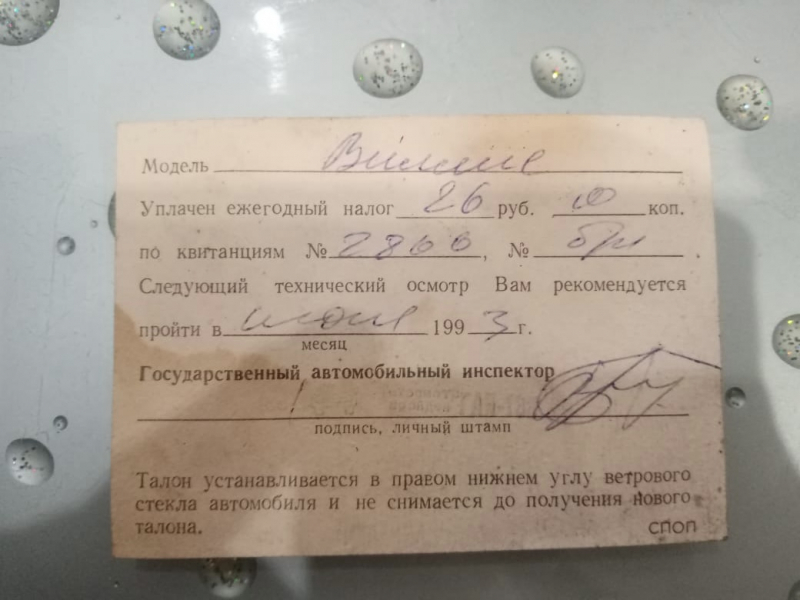 Модель
Уплачен ежегодный налог 26 руб. коп.
по квитанциям № 2866, № .
Следующий технический осмотр Вам рекомендуется
пройти в июне 1993 г.
месяц
Государственный автомобильный инспектор
подпись, личный штамп
Талон устанавливается в правом нижнем углу ветрового
стекла автомобиля и не снимается до получения нового
талона.
СПОП